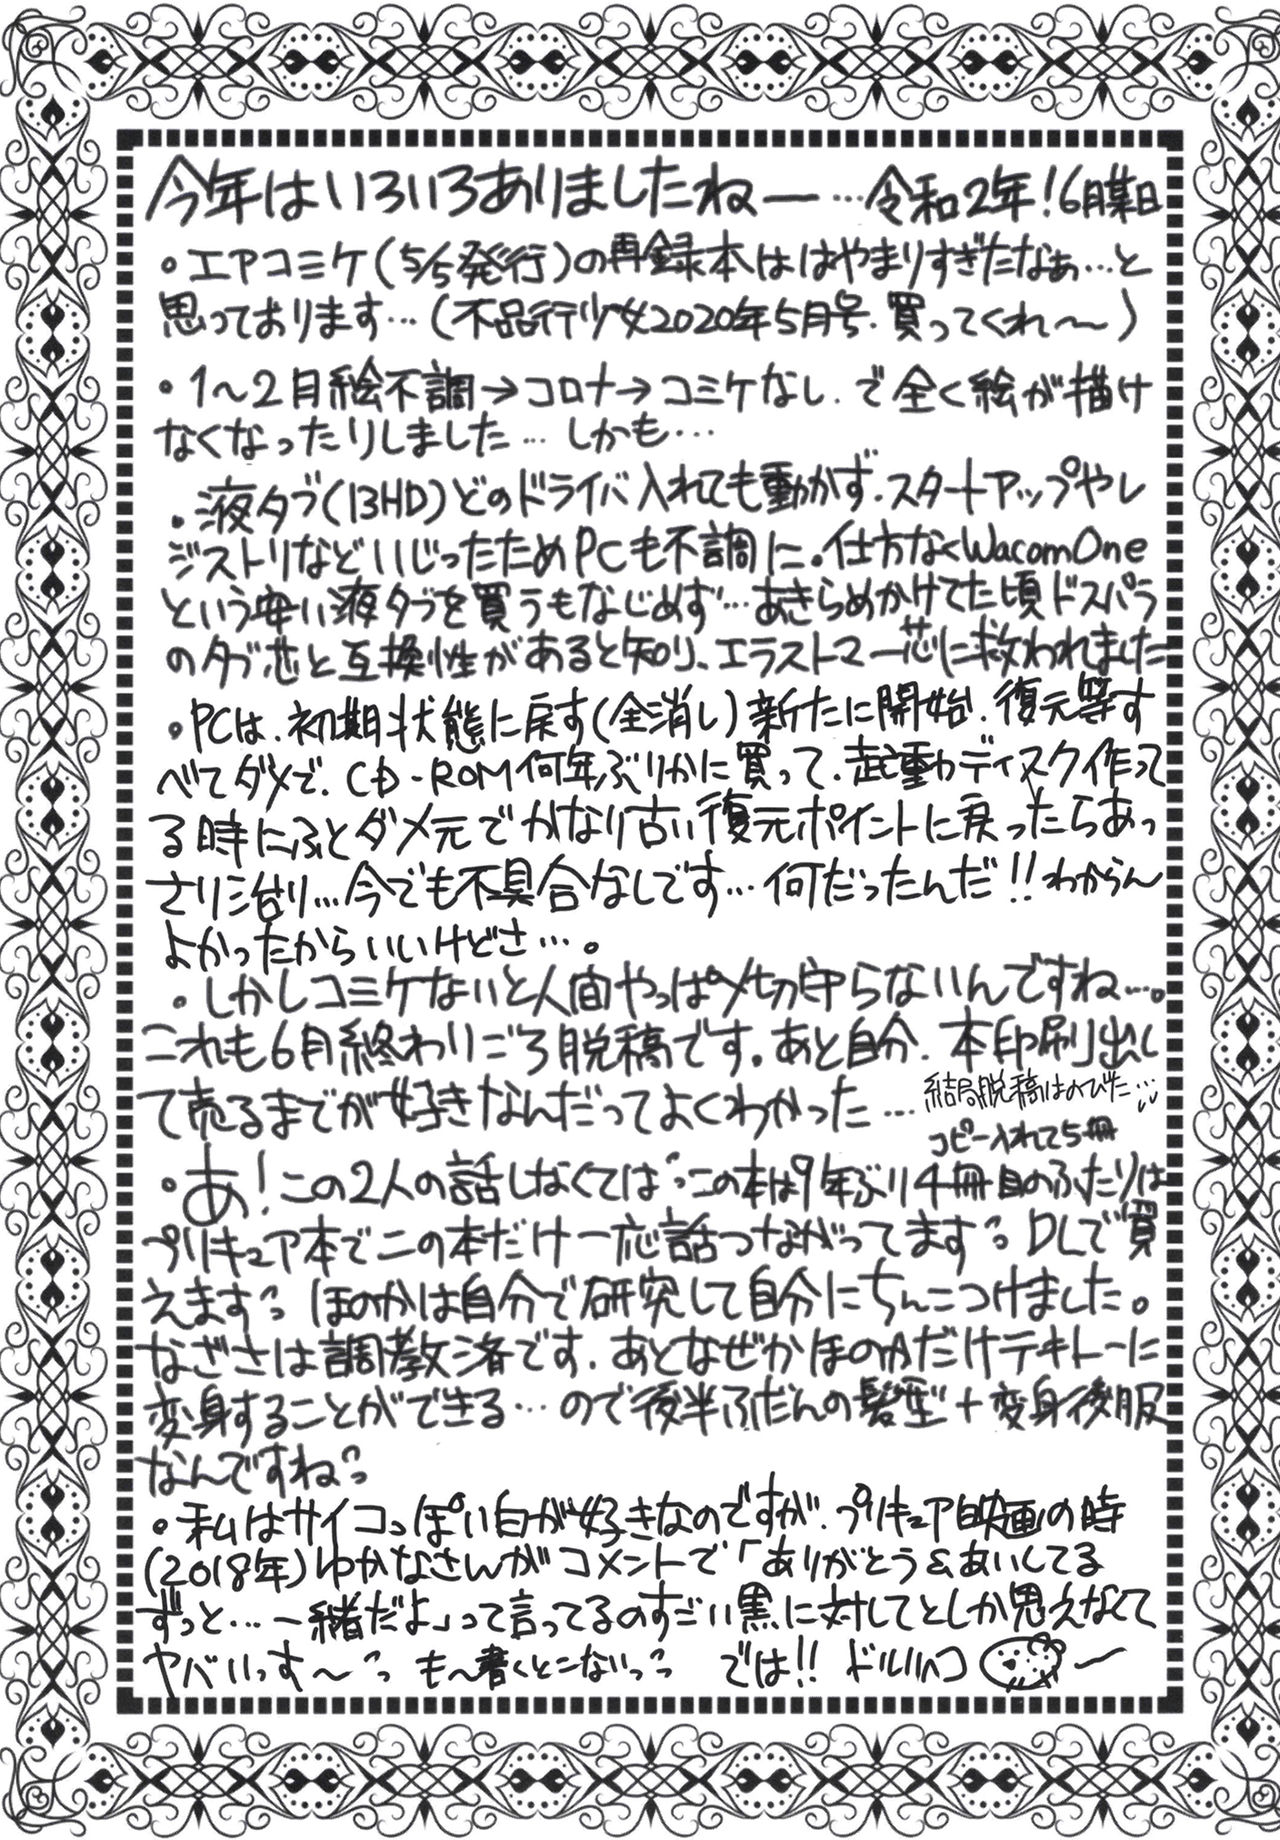 今年はいろいろありましたねー…令和2年!6月某日
・エアコミケ(5/5発行)の再録本ははやまりすぎたなぁ…と
思っております…(不品行少女2020年5月号.買ってくれ～)
・1～2月絵不調→コロナ→コミケなし.で全く絵が描け
なくなったりしました… しかも…
・液タブ(13HD)どのドライバ入れても動かず.スタートアップやレ
ジストリなどいじったためPCも不調に。仕方なくWacomOne
という安い液タブを買うもなじめず…あきらめかけてた頃ドスパラ
のタブ芯と互換性があると知り、エラストマー芯に救われました
・PCは、初期状態に戻す(全消し)新たに開始.復元等す
べてダメで.CD-ROM何年ぶりかに買って.起動ディスク作って
る時にふとダメ元でかなり古い復元ポイントに戻ったらあっ
さり治り…今でも不具合なしです…何だったんだ!!わからん
よかったからいいけどさ…。
・しかしコミケないと人間やっぱ〆切守らないんですね…。
これも6月終わりごろ脱稿です。あと自分.本印刷出し
て売るまでが好きなんだってよくわかった… 結局脱稿はのびた…
コピー入れて5冊
・あ!この2人の話しなくては この本は9年ぶり4冊目のふたりは
プリキュア本でこの本だけ一応話つながってます DLで買
えます ほのかは自分で研究して自分にちんこつけました。
なぎさは調教済です.あとなぜかほのかだけテキトーに
変身することができる…ので後半ふだんの髪型+変身後服
なんですね
・私はサイコっぽい白が好きなのですが.プリキュア映画の時
(2018年)ゆかなさんがコメントで「ありがとう&あいしてる
ずっと…一緒だよ」って言ってるのすごい黒に対してとしか思えなくて
ヤバいっす～ も～書くとこないっ では!! ドルハコ